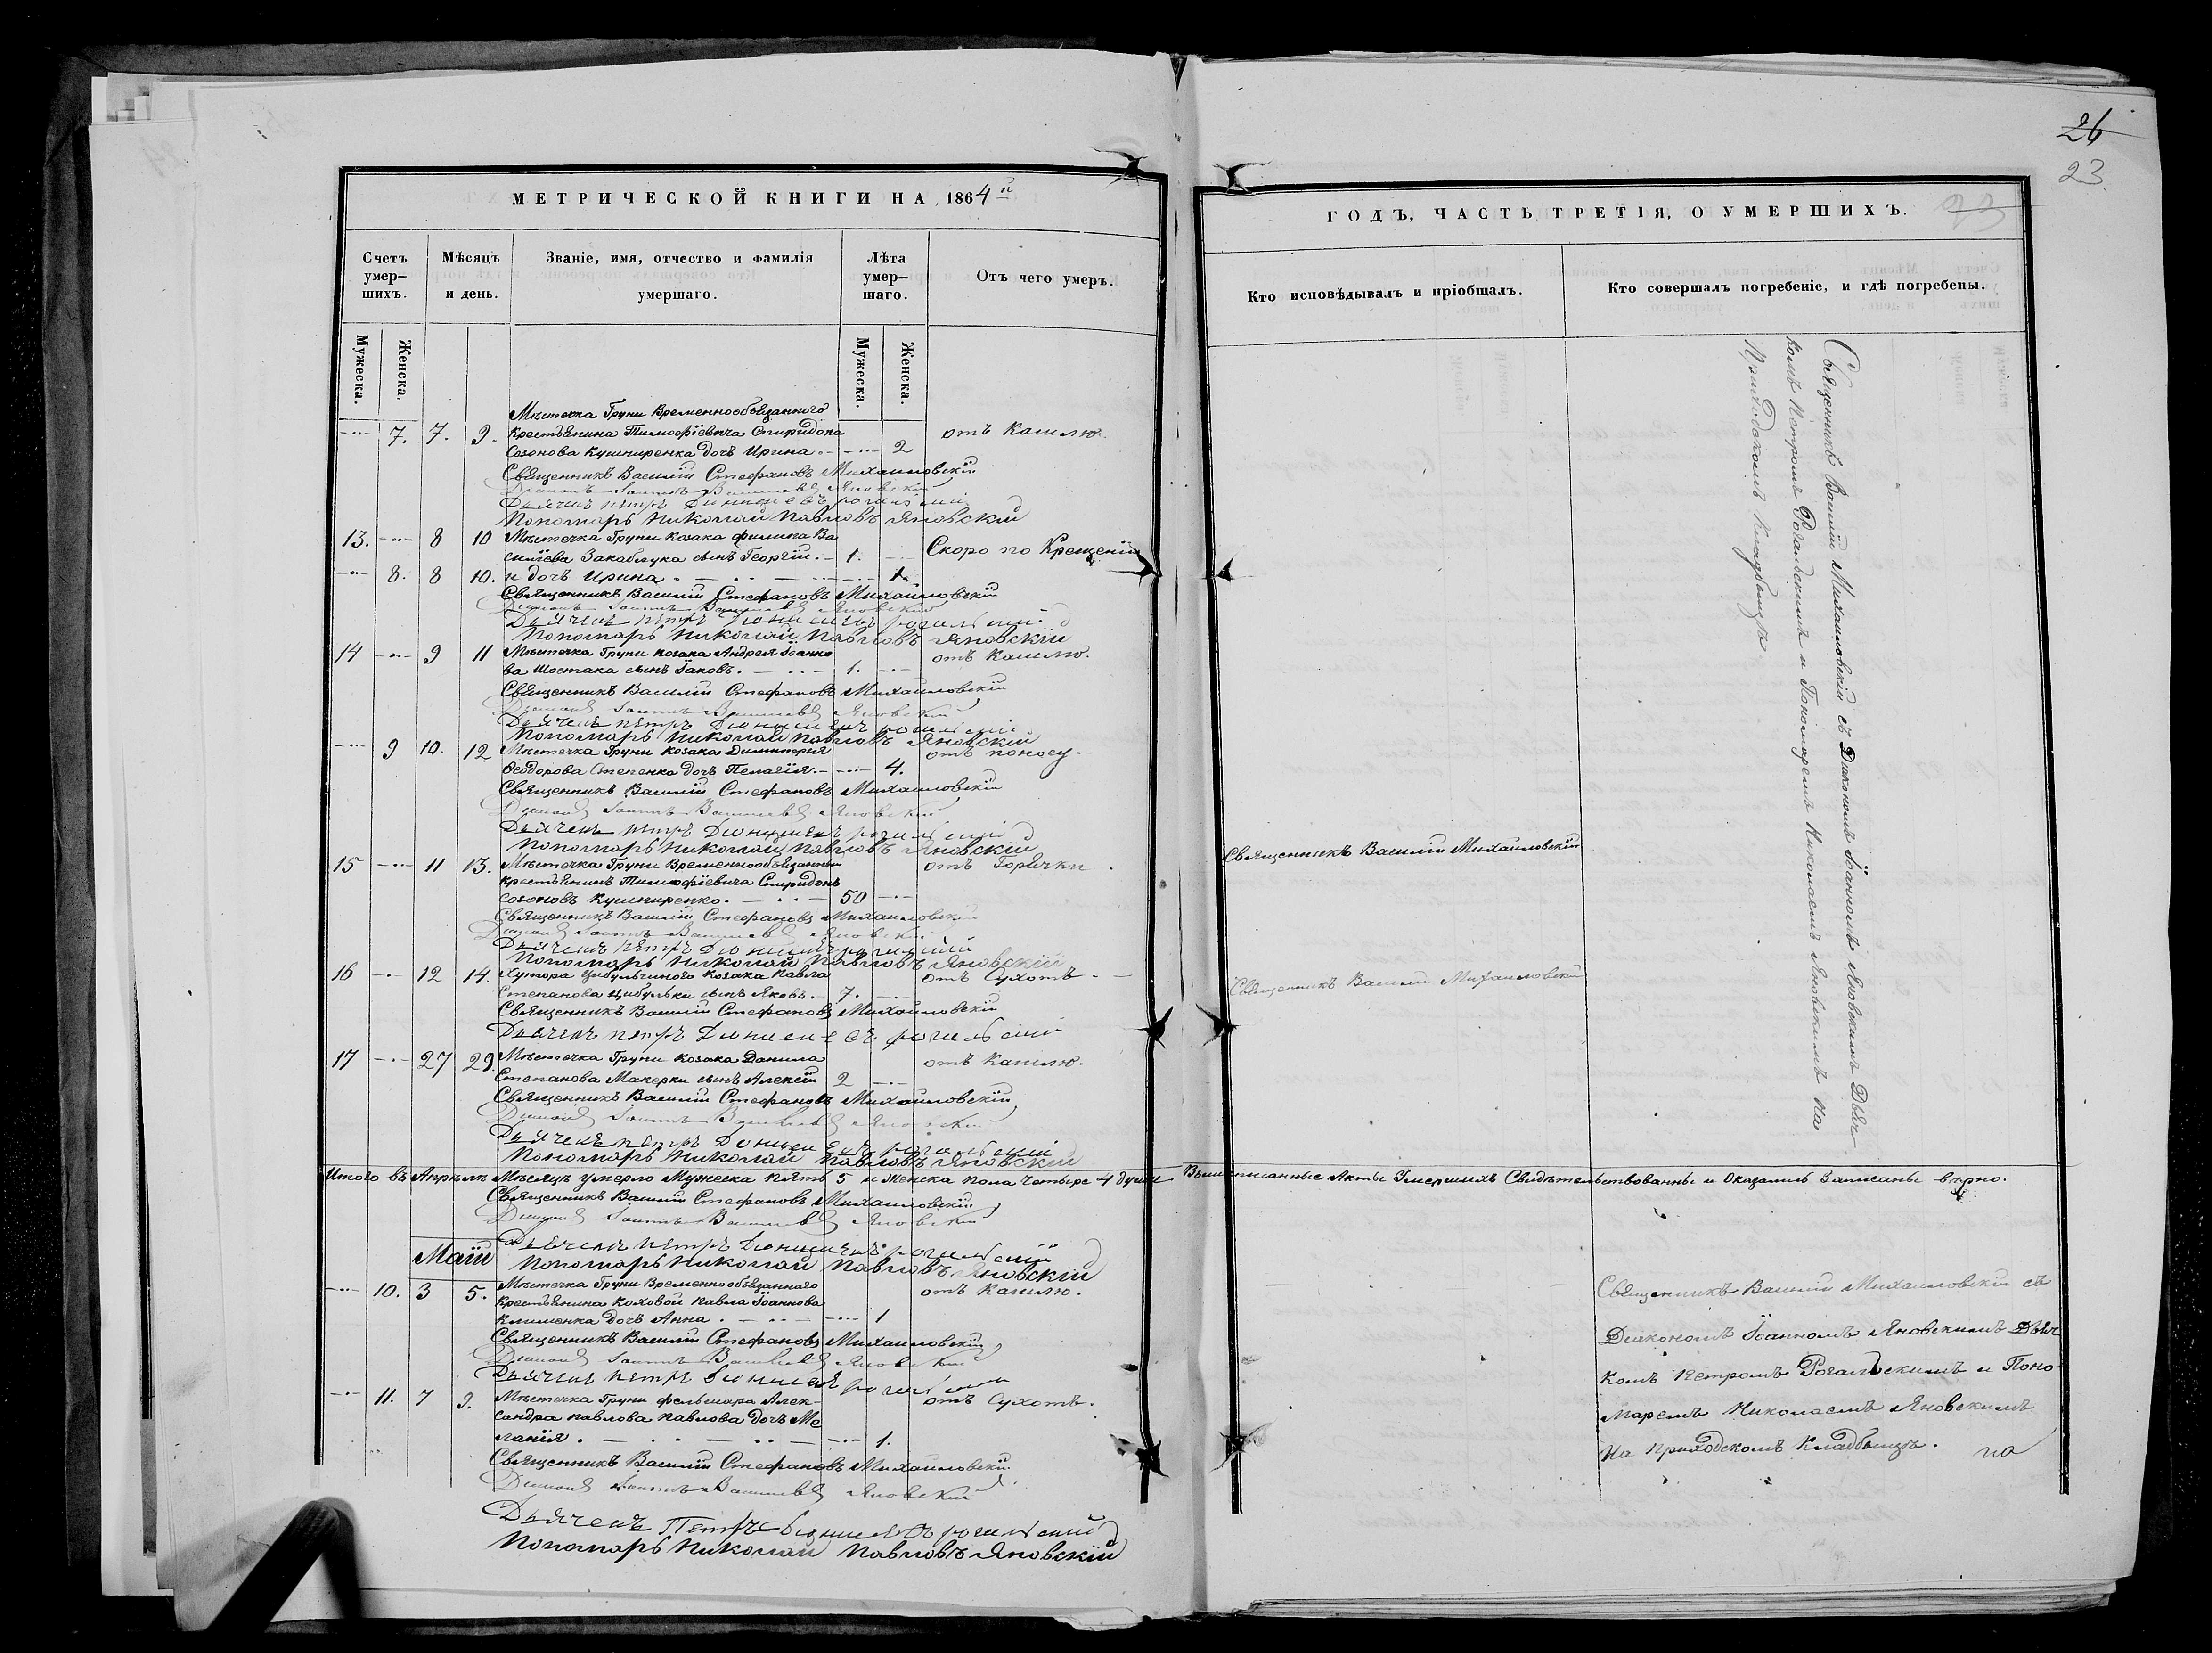 26
23.
МЕТРИЧЕСКОЙ КНИГИ НА 1864й
Счетъ умер-шихъ.
Мѣсяцъ и день.
Званіе, имя, отчество и фамилія умершаго.
Лѣта умер-шаго.
Отъ чего умеръ.
Мужеска. Женска. Мужеска. Женска.
Мѣстечка Груни Временнообязанного
7. 7. 9. Крестьянина Тимофіевича Спиридона отъ Кашлю.
Созонова Кушниренка дочь Ирина. 2
Священникъ Василій Стефановъ Михайловскій
Діаконъ Іоаннъ Васильевъ Яновскій
Дьячекъ Петръ Діонисіевъ Рогальскій
Пономарь Николай Павловъ Яновскій
13. 8 10 Мѣстечка Груни Козака Филипа Ва
силіева Закаблука сынъ Георгій. 1. Скоро по Крещеніи
8. 8 10. и дочь Ирина 1.
Священникъ Василій Стефановъ Михайловскій
Діаконъ Іоаннъ Васильевъ Яновскій
Дьячекъ Петръ Діонисіевъ Рогальскій
Пономарь Николай Павловъ Яновскій
14 9 11 Мѣстечка Груни Козака Андрея Іоанно отъ Кашлю.
ва Шостака сынъ Іаковъ. 1.
Священникъ Василій Стефановъ Михайловскій
Діаконъ Іоаннъ Васильевъ Яновскій
Дьячекъ Петръ Діонисіевъ Рогальскій
Пономарь Николай Павловъ Яновскій
9 10. 12 Мѣстечка Груни Козака Димитрія отъ поносу
Ѳеодорова Степенка дочь Пелагія. 4.
Священникъ Василій Стефановъ Михайловскій
Діаконъ Іоаннъ Васильевъ Яновскій
Дьячекъ Петръ Діонисіевъ Рогальскій
Пономарь Николай Павловъ Яновскій
15 11 13. Мѣстечка Груни Временнообязанный отъ Горячки
Крестьянинъ Тимофіевича Спиридонъ
Созоновъ Кушниренко. 50
Священникъ Василій Стефановъ Михайловскій
Діаконъ Іоаннъ Васильевъ Яновскій
Дьячекъ Петръ Діонисіевъ Рогальскій
Пономарь Николай Павловъ Яновскій
16 12 14. Хутора Цибульчиного Козака Павла отъ Сухотъ.
Степанова Цибульки сынъ Яковъ. 7.
Священникъ Василій Стефановъ Михайловскій
Дьячекъ Петръ Діонисіевъ Рогальскій
17 27 29. Мѣстечка Груни Козака Данила отъ Кашлю.
Степанова Макерки сынъ Алексій 2
Священникъ Василій Стефановъ Михайловскій
Діаконъ Іоаннъ Васильевъ Яновскій
Дьячекъ Петръ Діонисіевъ Рогальскій
Пономарь Николай Павловъ Яновскій
Итого въ Апрѣлѣ Мѣсяцѣ умерло Мужеска пять 5 и Женска пола четыре 4 души
Священникъ Василій Стефановъ Михайловскій
Діаконъ Іоаннъ Васильевъ Яновскій
Дьячекъ Петръ Діонисіевъ Рогальскій
Маій
Пономарь Николай Павловъ Яновскій
10. 3 5. Мѣстечка Груни Временнообязанного отъ Кашлю.
Крестьянина Коховой Павла Іоаннова
Клименка дочь Анна. 1
Священникъ Василій Стефановъ Михайловскій
Діаконъ Іоаннъ Васильевъ Яновскій
Дьячекъ Петръ Діонисіевъ Рогальскій
11. 7 9. Мѣстечка Груни фельшара Алек- отъ Сухотъ.
сандра Павлова Павлова дочь Ме
ланія. 1.
Священникъ Василій Стефановъ Михайловскій
Діаконъ Іоаннъ Васильевъ Яновскій
Дьячекъ Петръ Діонисіевъ Рогальскій
Пономарь Николай Павловъ Яновскій
ГОДЪ, ЧАСТЬ ТРЕТІЯ, О УМЕРШИХЪ.
23
Кто исповѣдывалъ и пріобщалъ.
Кто совершалъ погребеніе, и гдѣ погребены.
Священникъ Василій Михайловскій съ Діякономъ Іоанномъ Яновскимъ Дьяч
комъ Петромъ Рогальскимъ и Пономаремъ Николаемъ Яновскимъ на
Приходскомъ Кладбищѣ.
Священникъ Василій Михайловскій
Священникъ Василій Михайловскій
Вышеписанные Акты Умершихъ Свидѣтельствованны и Оказались Записаны вѣрно.
Священникъ Василій Михайловскій съ
Діякономъ Іоанномъ Яновскимъ Дьяч
комъ Петромъ Рогальскимъ и Поно-
маремъ Николаемъ Яновскимъ
На приходскомъ Кладбищѣ. на